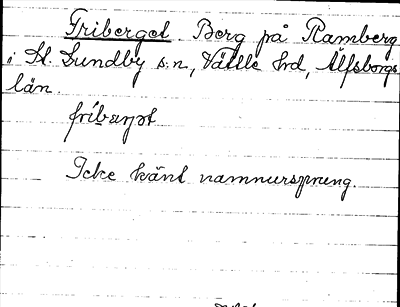 Friberget. Berg på Ramberg
i St. Lundby s:n, Vättle hd, Älfsborgs
län.
Icke känt namnursprung.